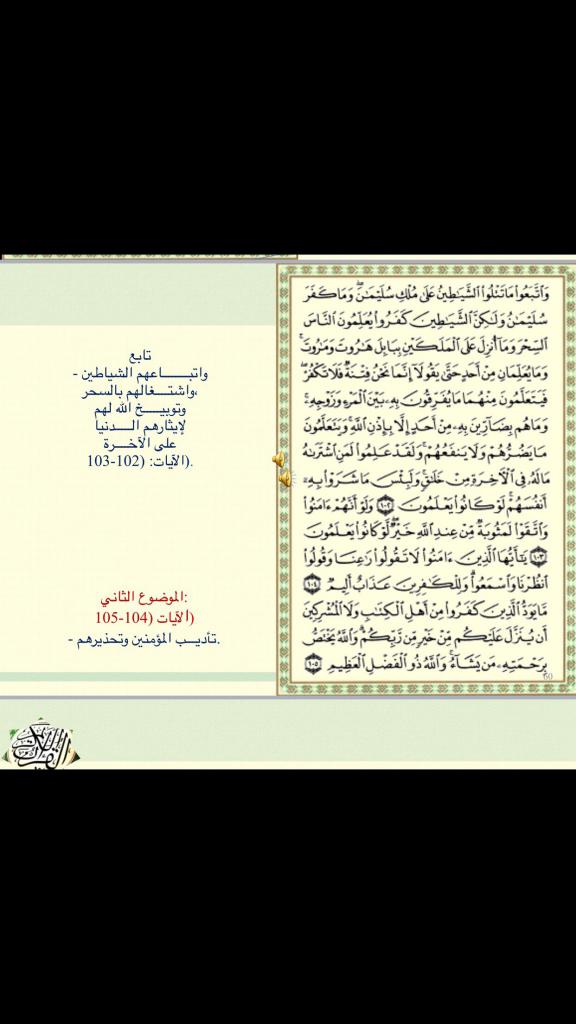 وَٱتَّبَعُوا۟ مَا تَتْلُوا۟ ٱلشَّيَـٰطِينُ عَلَىٰ مُلْكِ سُلَيْمَـٰنَ ۖ وَمَا كَفَرَ
سُلَيْمَـٰنُ وَلَـٰكِنَّ ٱلشَّيَـٰطِينَ كَفَرُوا۟ يُعَلِّمُونَ ٱلنَّاسَ
ٱلسِّحْرَ وَمَآ أُنزِلَ عَلَى ٱلْمَلَكَيْنِ بِبَابِلَ هَـٰرُوتَ وَمَـٰرُوتَ ۚ
وَمَا يُعَلِّمَانِ مِنْ أَحَدٍ حَتَّىٰ يَقُولَآ إِنَّمَا نَحْنُ فِتْنَةٌ فَلَا تَكْفُرْ ۖ
فَيَتَعَلَّمُونَ مِنْهُمَا مَا يُفَرِّقُونَ بِهِۦ بَيْنَ ٱلْمَرْءِ وَزَوْجِهِۦ ۚ
وَمَا هُم بِضَآرِّينَ بِهِۦ مِنْ أَحَدٍ إِلَّا بِإِذْنِ ٱللَّهِ ۚ وَيَتَعَلَّمُونَ
مَا يَضُرُّهُمْ وَلَا يَنفَعُهُمْ ۚ وَلَقَدْ عَلِمُوا۟ لَمَنِ ٱشْتَرَىٰهُ
مَا لَهُۥ فِى ٱلْـَٔاخِرَةِ مِنْ خَلَـٰقٍ ۚ وَلَبِئْسَ مَا شَرَوْا۟ بِهِۦٓ
أَنفُسَهُمْ ۚ لَوْ كَانُوا۟ يَعْلَمُونَ ١٠٢ وَلَوْ أَنَّهُمْ ءَامَنُوا۟
وَٱتَّقَوْا۟ لَمَثُوبَةٌ مِّنْ عِندِ ٱللَّهِ خَيْرٌ ۖ لَّوْ كَانُوا۟ يَعْلَمُونَ
١٠٣ يَـٰٓأَيُّهَا ٱلَّذِينَ ءَامَنُوا۟ لَا تَقُولُوا۟ رَٰعِنَا وَقُولُوا۟
ٱنظُرْنَا وَٱسْمَعُوا۟ ۗ وَلِلْكَـٰفِرِينَ عَذَابٌ أَلِيمٌ ١٠٤
مَّا يَوَدُّ ٱلَّذِينَ كَفَرُوا۟ مِنْ أَهْلِ ٱلْكِتَـٰبِ وَلَا ٱلْمُشْرِكِينَ
أَن يُنَزَّلَ عَلَيْكُم مِّنْ خَيْرٍ مِّن رَّبِّكُمْ ۗ وَٱللَّهُ يَخْتَصُّ
بِرَحْمَتِهِۦ مَن يَشَآءُ ۚ وَٱللَّهُ ذُو ٱلْفَضْلِ ٱلْعَظِيمِ ١٠٥
60
تابع
واتبـــــاعهم الشياطين -
،واشتـــغالهم بالسحر
وتوبيـــخ الله لهم
لإيثارهم الـــدنيا
على الآخـــرة
.(الآيات: (102-103
:الموضوع الثاني
(الآيات (104-105
.تأديــب المؤمنين وتحذيرهم -
القرآن الكريم